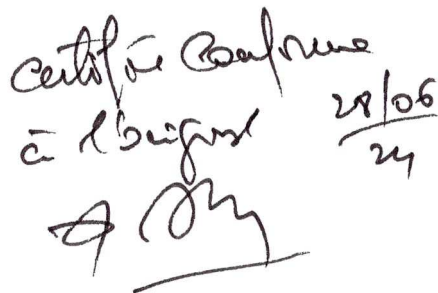 certifiée conforme
à l'original
28/06
24